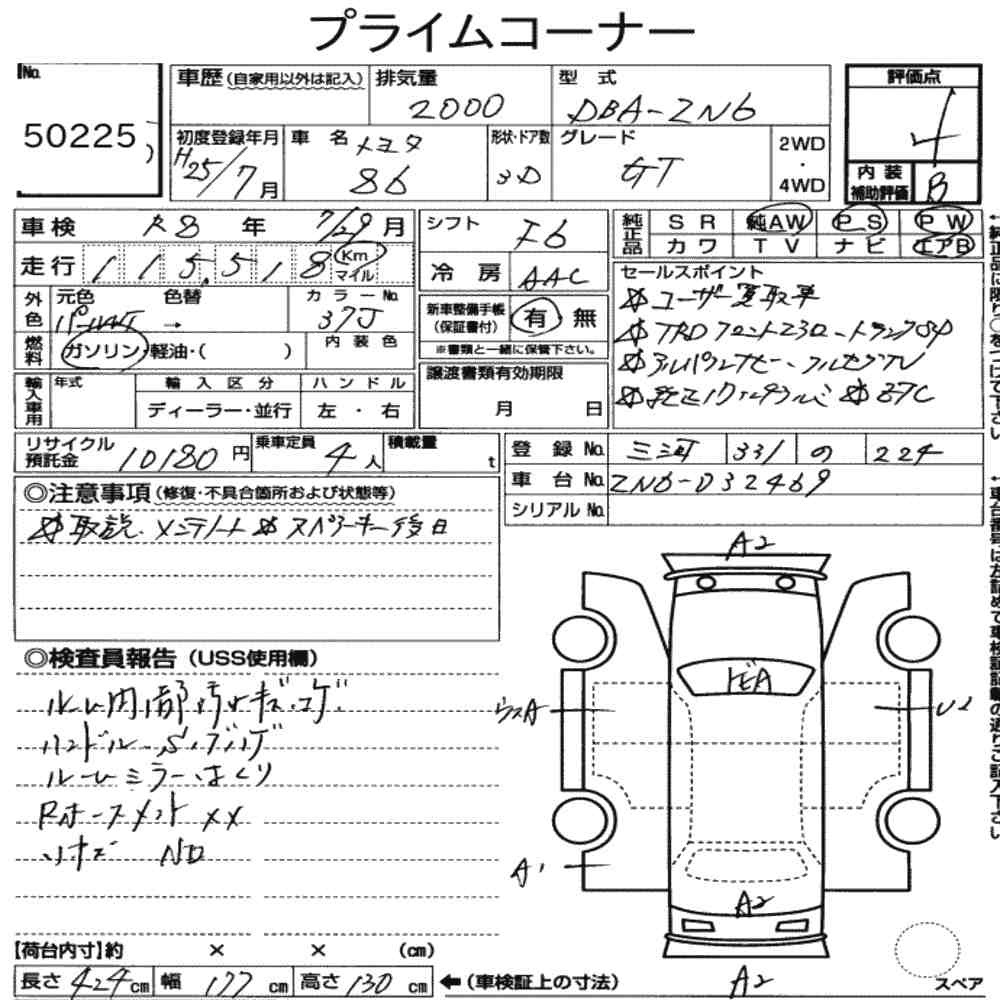 プライムコーナー
No.
50225
車歴 (自家用以外は記入)
排気量
2000
型式
DBA-ZN6
評価点
4
初度登録年月
H25/7月
車名
トヨタ
86
形状・ドア数
3D
グレード
GT
2WD
・
4WD
内装
補助評価
B
車検 R8年 7/29月
走行 115,518 Km マイル
外色
元色 色替
パールW →
カラーNo.
37J
燃料
ガソリン・軽油・( )
内装色
輸入車用
年式
輸入区分
ディーラー・並行
ハンドル
左・右
シフト
I6
冷房
AAC
新車整備手帳
(保証書付)
有 無
※書類と一緒に保管下さい。
譲渡書類有効期限
月 日
純正品
SR 純AW PS PW
カワ TV ナビ エアB
セールスポイント
ユーザー買取車
TRDフロントエアロ トランクSP
アルパインナビ・フルセグTV
純正17アルミ ETC
←純正品に限り○をつけて下さい
リサイクル
預託金
10180円
乗車定員
4人
積載量
t
登録No. 三河 331 の 224
車台No. ZN6-032469
シリアルNo.
◎注意事項 (修復・不具合箇所および状態等)
取説・メンテノート スペアーキー後日
←車台番号は左詰めで車検証記載の通りご記入下さい
◎検査員報告 (USS使用欄)
ルーム内部汚レ・キズ・コゲ
ハンドル・S・ハゲ
ルームミラーはくり
Rホースメント XX
ソナキズ ND
A2
トビA
ウスA
U2
A1
A2
A2
スペア
【荷台内寸】約 × × (cm)
長さ 424 cm 幅 177 cm 高さ 130 cm ←(車検証上の寸法)